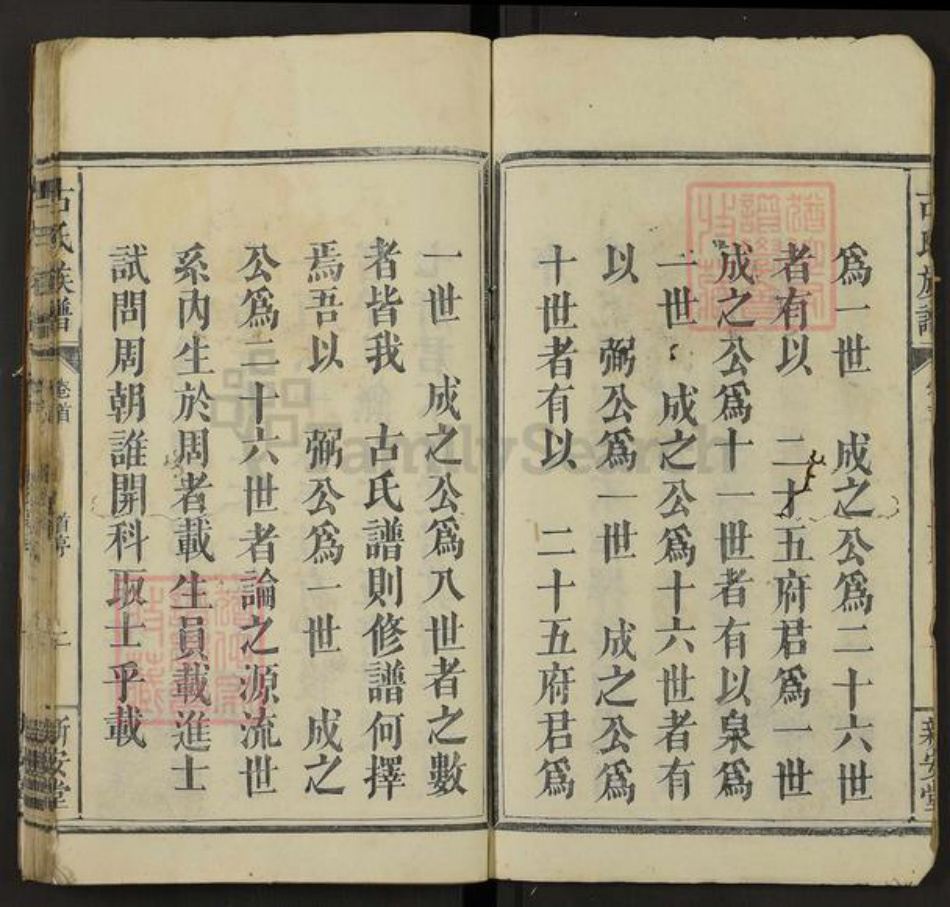 爲一世　成之公爲二十六世
者有以　二才五府君爲一世
成之公爲十一世者有以泉爲
一世　成之公爲十六世者有
以　弼公爲一世　成之公爲
十世者有以　二十五府君爲
一世　成之公爲八世者之數
者皆我　古氏譜則修譜何擇
焉吾以　弼公爲一世　成之
公爲二十六世者論之源流世
系內生於周者載生員載進士
試問周朝誰開科取士乎載
古氏族譜
卷首
首序
二
新安堂
FamilySearch